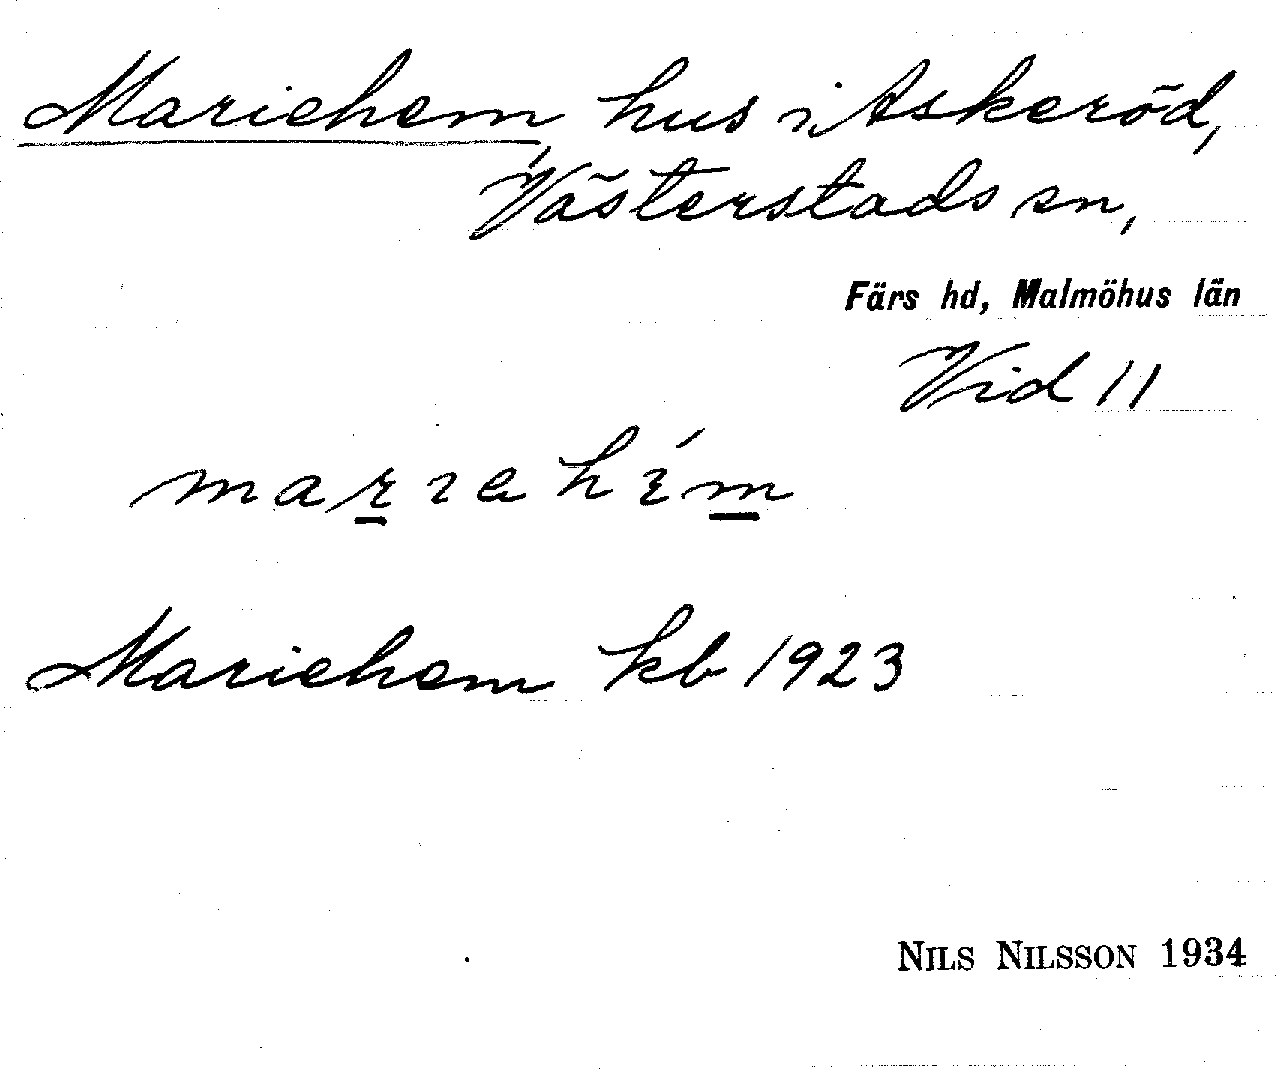 Mariehem, hus i Askeröd,
Västerstads sn,
Färs hd, Malmöhus län
Vid 11
Mariehem kb 1923
NILS NILSSON 1934